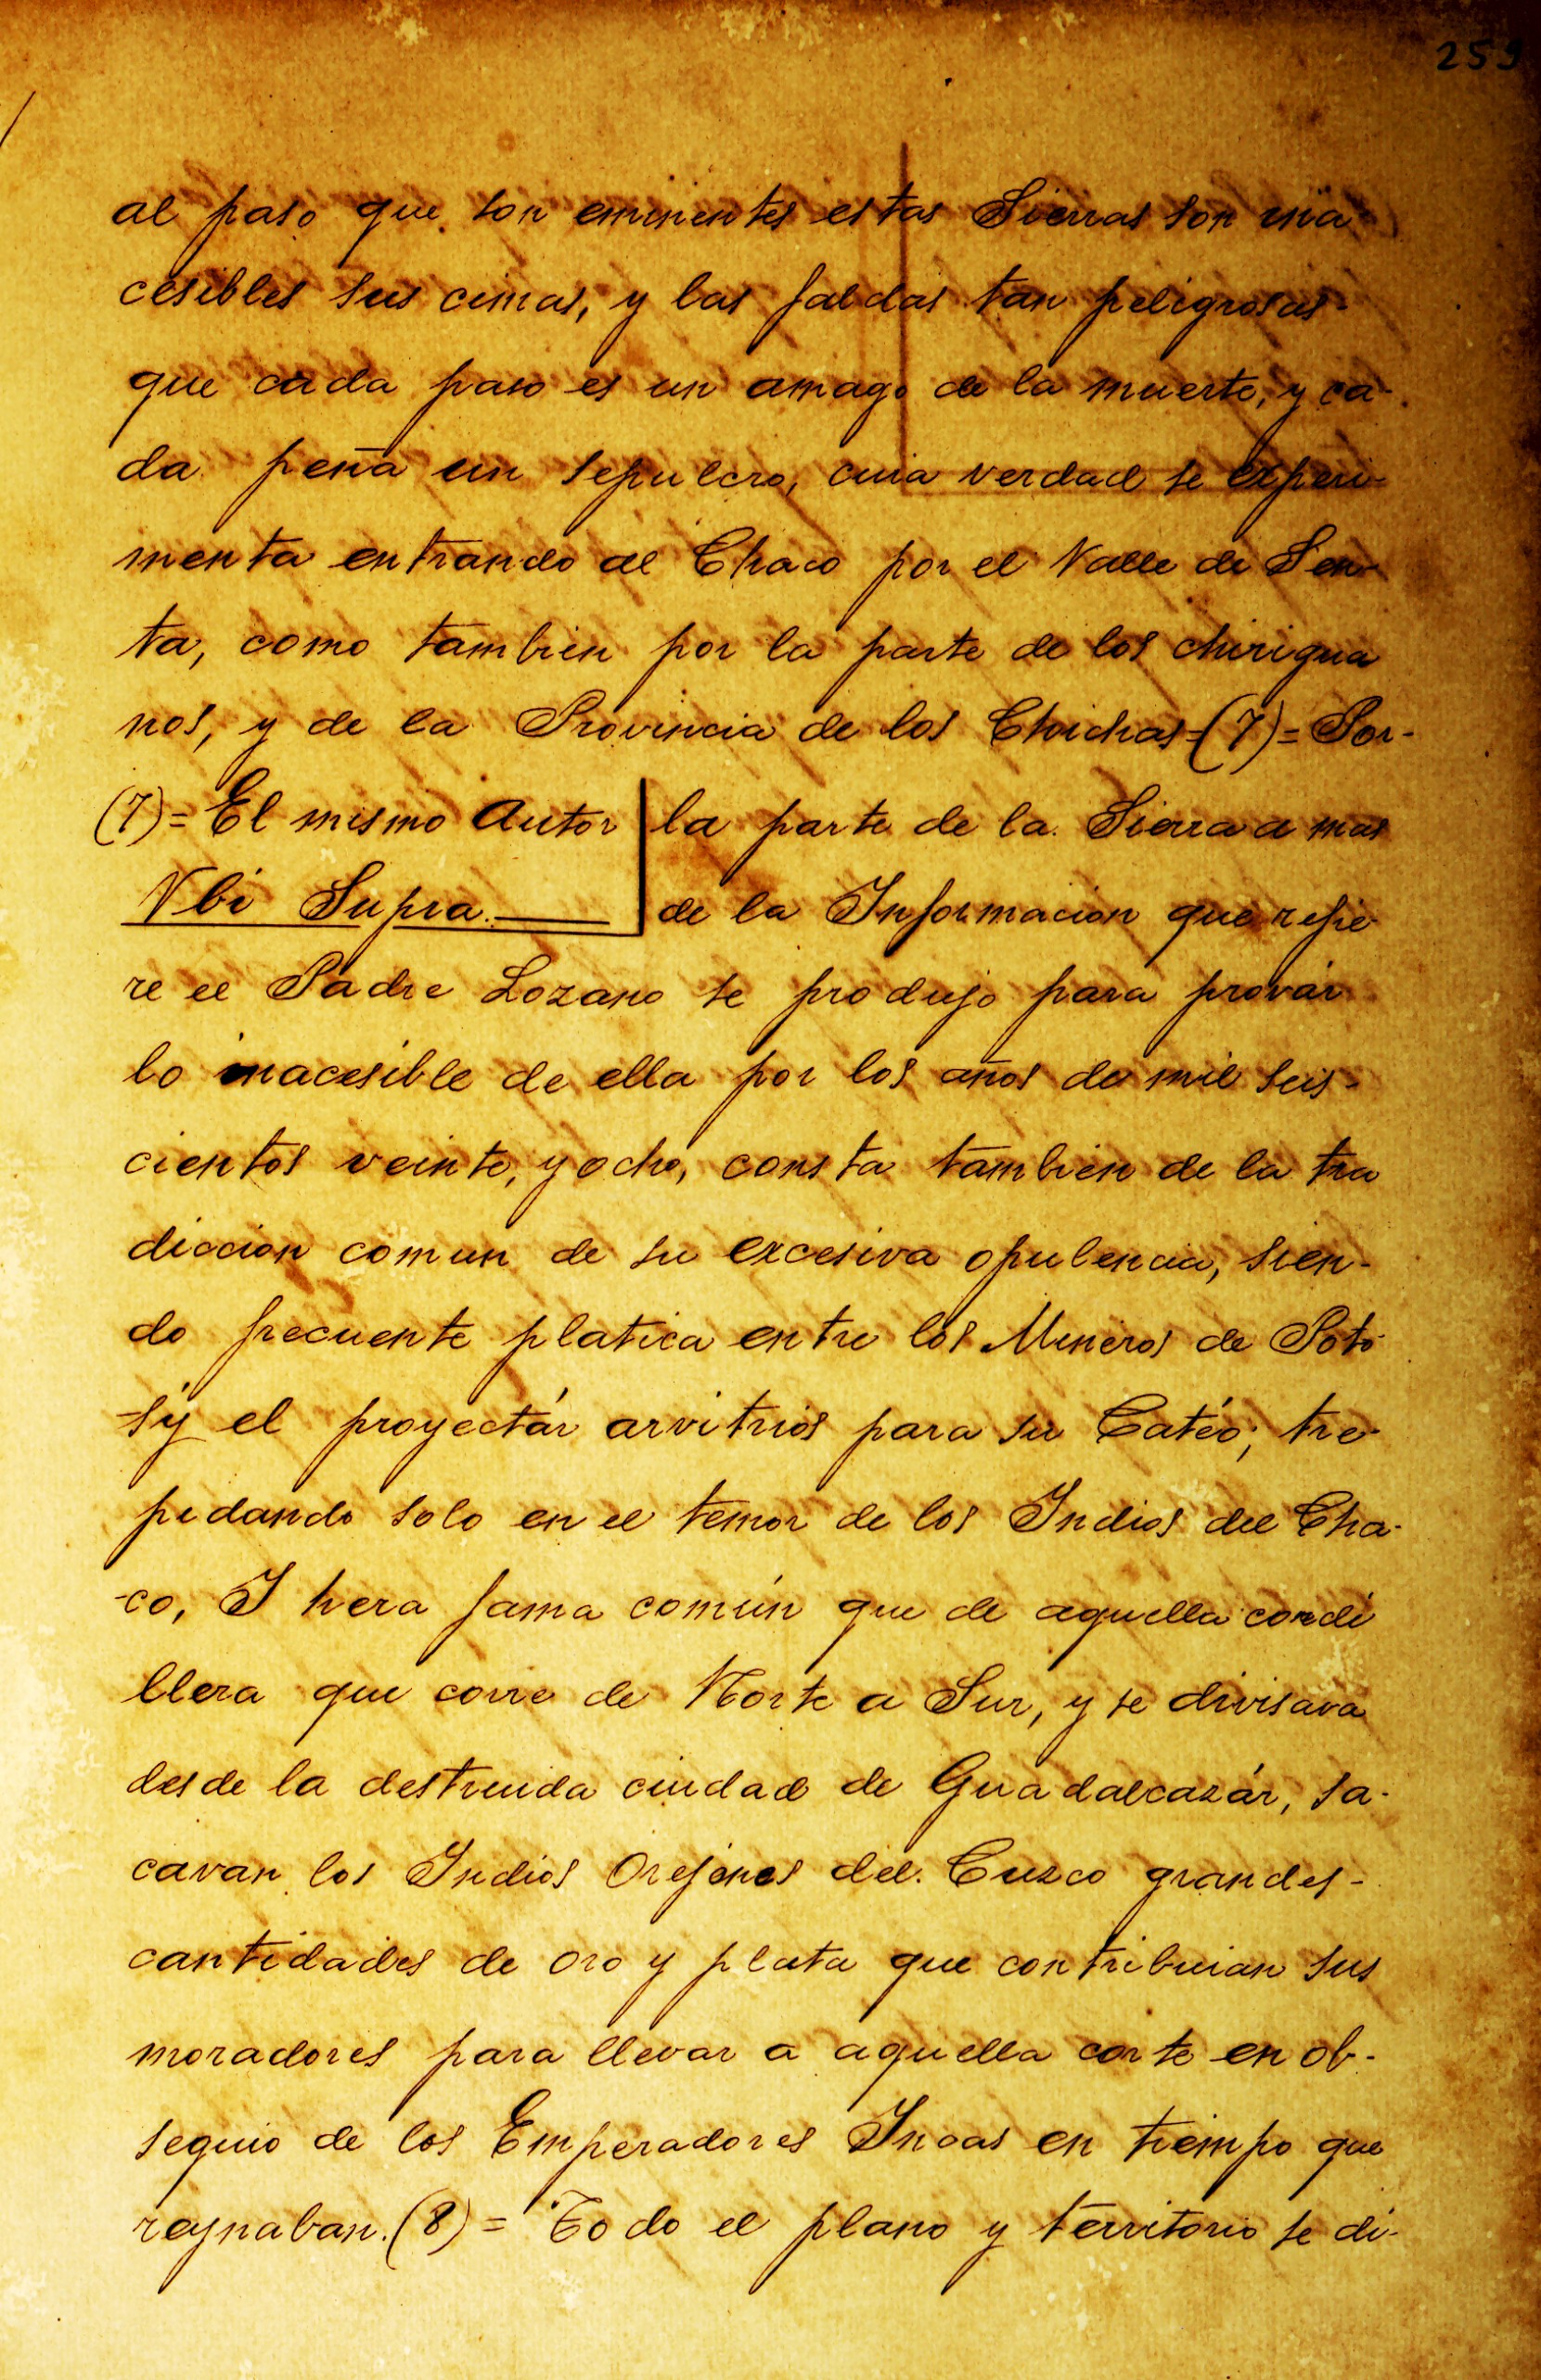 259
al paso que son eminentes estas Sierras son ina
cesibles sus cimas, y las faldas tan peligrosas-
que cada paso es un amago de la muerte, y ca-
da peña un sepulcro, cuia verdad se experi-
menta entrando al Chaco por el Valle de Sen-
ta, como tambien por la parte de los chirigua
nos, y de la Provincia de los Chichas=(7)= Por-
(7)= El mismo Autor
Vbi Supra.
la parte de la Sierra a mas
de la Informacion que refie-
re el Padre Lozano se produjo para provár
lo inacesible de ella por los años de mil seis-
cientos veinte, y ocho, consta tambien de la tra
diccion comun de su excesiva opulencia, sien-
do frecuente platica entre los Mineros de Poto
-sÿ el proyectár arvitrios para su Catéo; tre-
pidando solo en el temor de los Indios del Cha-
-co, I hera fama común que de aquella cordi
llera que corre de Norte a Sur, y se divisava
desde la destruida ciudad de Guadalcazár, sa-
cavan los Indios Orejones del Cuzco grandes-
cantidades de oro y plata que contribuian sus
moradores para llevar a aquella corte en ob-
sequio de los Emperadores Incas en tiempo que
reynaban.(8)= Todo el plano y territorio se di-